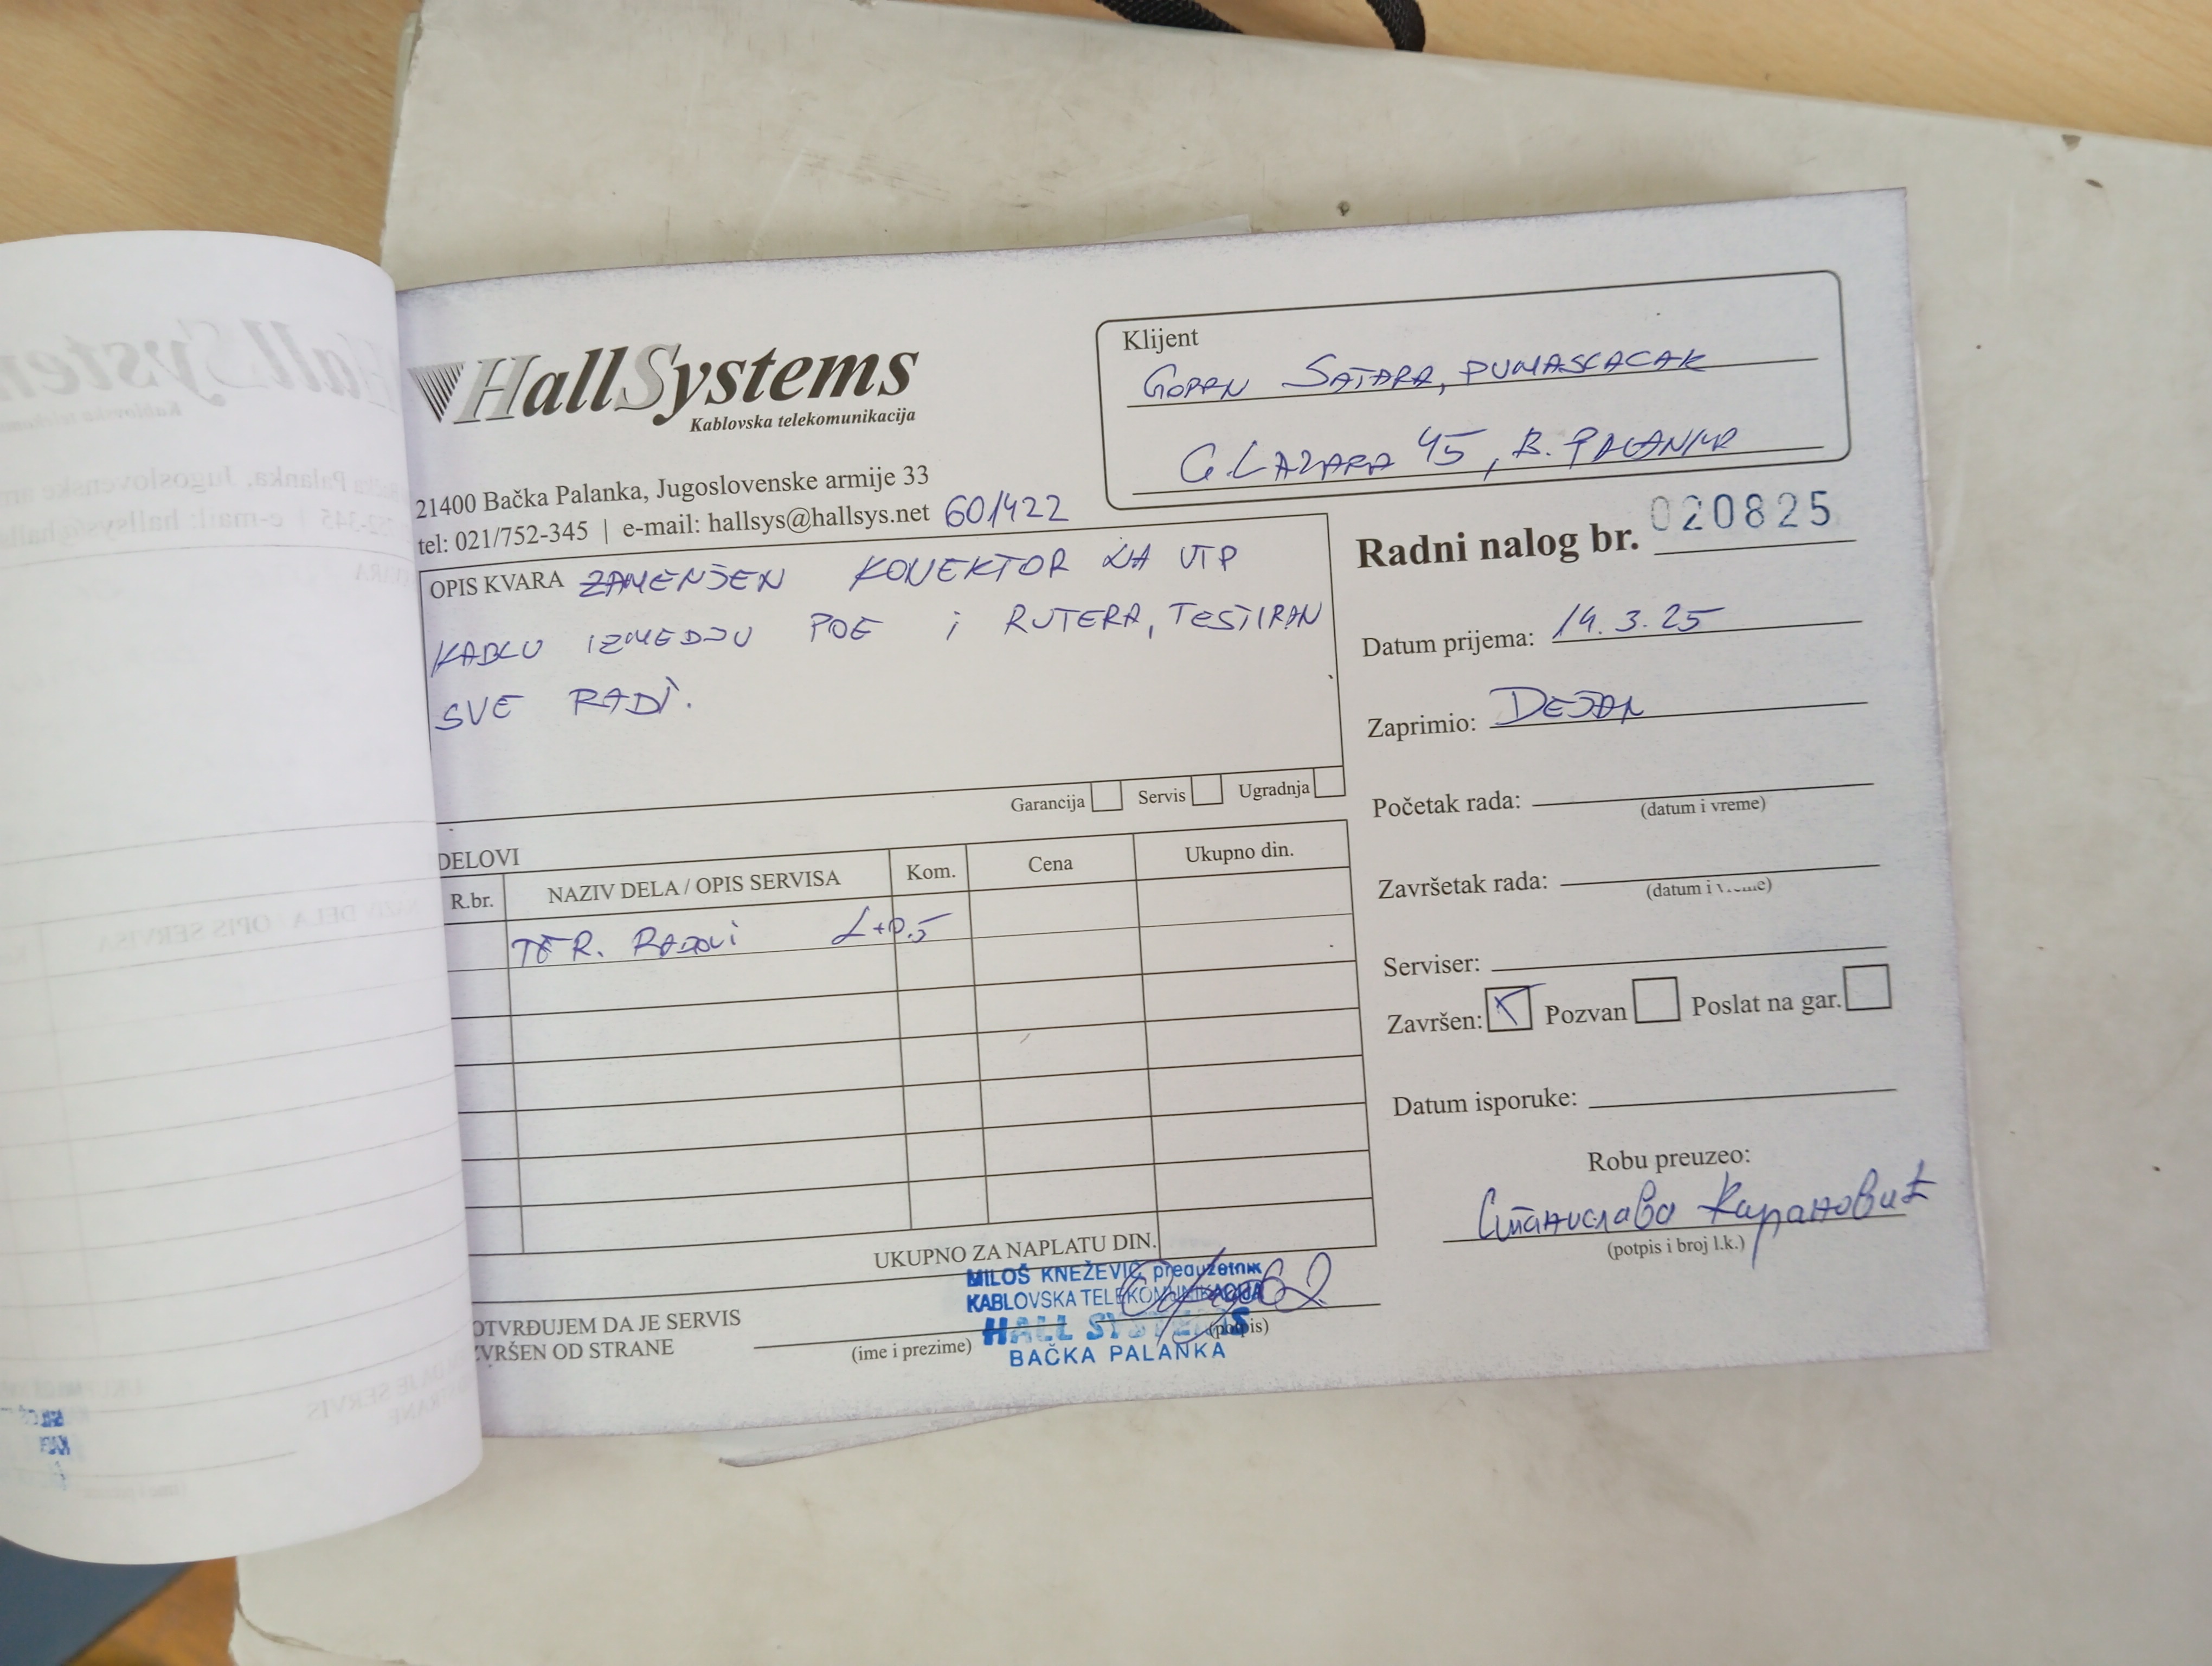 HallSystems
Kablovska telekomunikacija
21400 Bačka Palanka, Jugoslovenske armije 33
tel: 021/752-345 | e-mail: hallsys@hallsys.net 601422
Klijent
GORAN SATARA,
C. LAZARA 45, B. PALANKA
Radni nalog br. 020825
OPIS KVARA ZAMENJEN KONEKTOR NA UTP
KABLU IZMEDJU POE i RUTERA, TESTIRAN
SVE RADI.
Garancija Servis Ugradnja
Datum prijema: 14.3.25
Zaprimio: DEJAN
Početak rada:
(datum i vreme)
Završetak rada:
(datum i vreme)
Serviser:
Završen: Pozvan Poslat na gar.
Datum isporuke:
Robu preuzeo:
Станислава Карановић
(potpis i broj l.k.)
DELOVI
R.br. NAZIV DELA / OPIS SERVISA Kom. Cena Ukupno din.
TER. RADOVI +0.5
UKUPNO ZA NAPLATU DIN.
OTVRĐUJEM DA JE SERVIS
ZVRŠEN OD STRANE
(ime i prezime)
(potpis)
MILOŠ KNEŽEVIĆ preduzetnik
KABLOVSKA TELEKOMUNIKACIJA
HALL SYSTEMS
BAČKA PALANKA